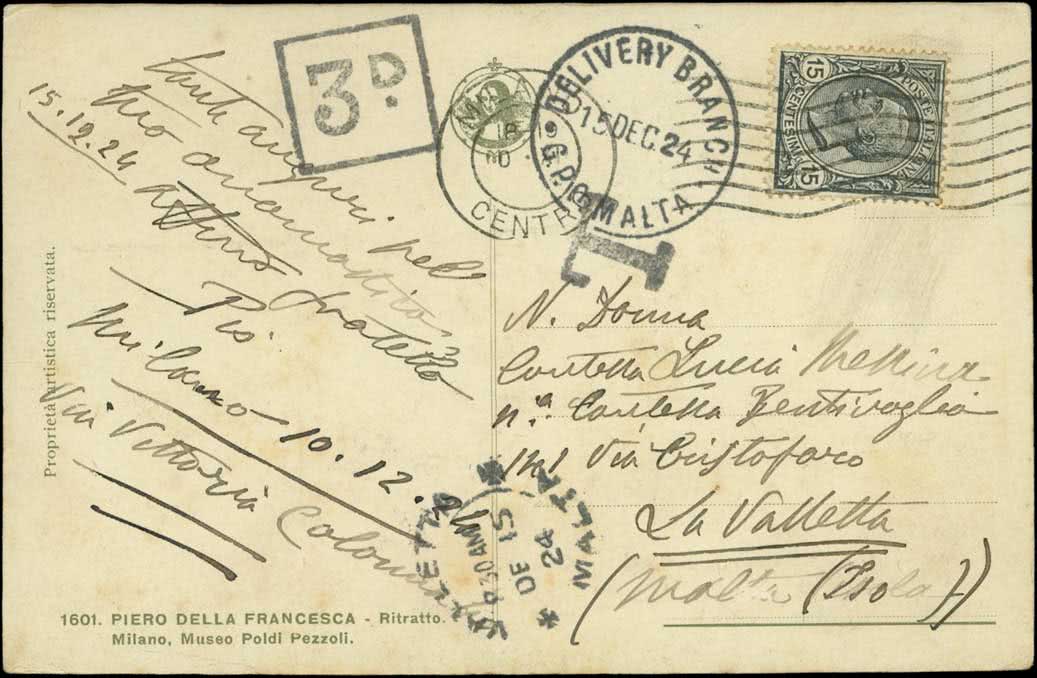 3D.
DELIVERY BRANCH
15 DEC. 24
G.P.O. MALTA
MILANO
18
CENTRO
15 POSTE ITALIANE
CENTESIMI 15
T
auguri pel
tuo onomastico
15.12.24
fratello
Pio
Milano 10.12.24
Via Vittoria Colonna
N. Donna
Contessa Lucia Messina
n.ª Contessa Bentivoglio
141 Via Cristoforo
La Valletta
(Malta (Isola))
VALLETTA
730 AM
DE 15
24
MALTA
Proprietà artistica riservata.
1601. PIERO DELLA FRANCESCA - Ritratto.
Milano, Museo Poldi Pezzoli.